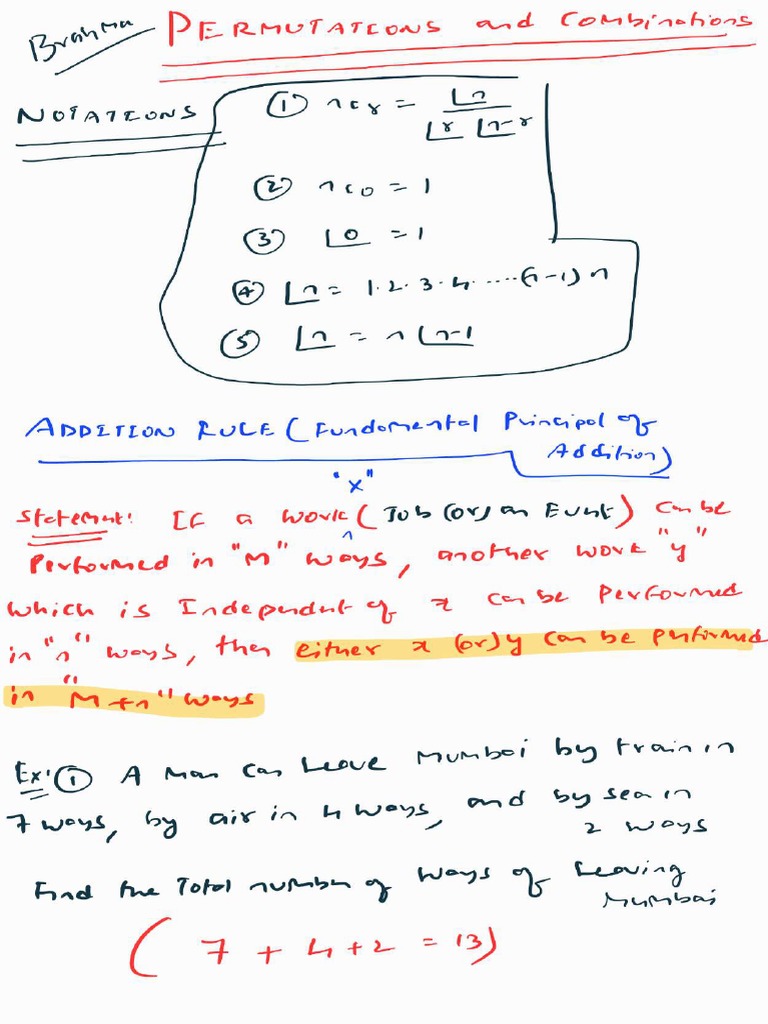 Brahma
PERMUTATIONS and Combinations
NOTATIONS
① ncr = ⌊n / ⌊r ⌊n-r
② nc0 = 1
③ ⌊0 = 1
④ ⌊n = 1.2.3.4.....(n-1) n
⑤ ⌊n = n ⌊n-1
ADDITION RULE (Fundamental Principal of
Addition)
"x"
Statement: If a work (Job (or) an Event) can be
Performed in "M" ways, another work "y"
which is Independent of x can be performed
in "n" ways, then either x (or) y can be performed
in "M+n" ways
Ex: ① A man can Leave Mumbai by train in
7 ways, by air in 4 ways, and by sea in
2 ways
Find the Total number of ways of Leaving
Mumbai
(7 + 4 + 2 = 13)